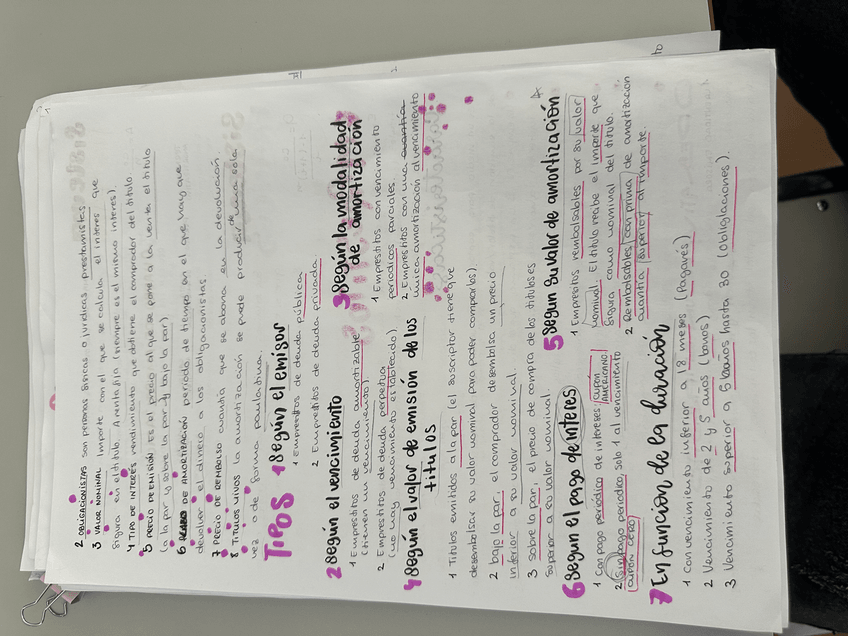 2 OBLIGACIONISTAS son personas fisicas o juridicas prestamistas
3 VALOR NOMINAL Importe con el que se calcula el interes que
figura en el titulo. A renta fija (siempre es el mismo interes).
4 TIPO DE INTERÉS rendimiento que obtiene el comprador del titulo
5 PRECIO DE EMISIÓN Es el precio al que se pone a la venta el titulo
(a la par y sobre la par y bajo la par)
6 PLAZO DE AMORTIZACIÓN periodo de tiempo en el que hay que
devolver el dinero a los obligacionistas
7 PRECIO DE REMBOLSO cuantia que se abona en la devolución.
8 TITULOS VIVOS la amortización se puede producir de una sola
vez o de forma paulatina.
TIPOS 1 Según el emisor
1 Emprestitos de deuda pública
2 Emprestitos de deuda privada
2 Segun el vencimiento
1 Emprestitos de deuda amortizable
(tienen un vencimiento).
2 Emprestitos de deuda perpetua
(no hay vencimiento establecido)
3 Según la modalidad
de amortización
1 Emprestitos con vencimiento
periodicos parciales.
2 Emprestitos con una cuantia
única amortización al vencimiento
4 Segun el valor de emisión de los
titulos
1 Titulos emitidos a la par (el suscriptor tiene que
desembolsar su valor nominal para poder comprarlos).
2 bajo la par, el comprador desembolsa un precio
inferior a su valor nominal.
3 sobre la par, el precio de compra de los titulos es
superior a su valor nominal.
5 Segun su valor de amortización
1 Emprestitos rembolsables por su valor
nominal. El titulo recibe el importe que
figura como nominal del titulo.
2 Rembolsables con prima de amortización
cuantia superior al importe.
6 Segun el pago de interes
1 Con pago periodico de intereses: CUPON
AMERICANO
2 Sin pago periodico, solo 1 al vencimiento
CUPÓN CERO
7 En funcion de la duración
1 Con vencimiento inferior a 18 meses (Pagarés)
2 Vencimiento de 2 y 5 años (bonos)
3 Vencimiento superior a 5 años hasta 30 (obligaciones).